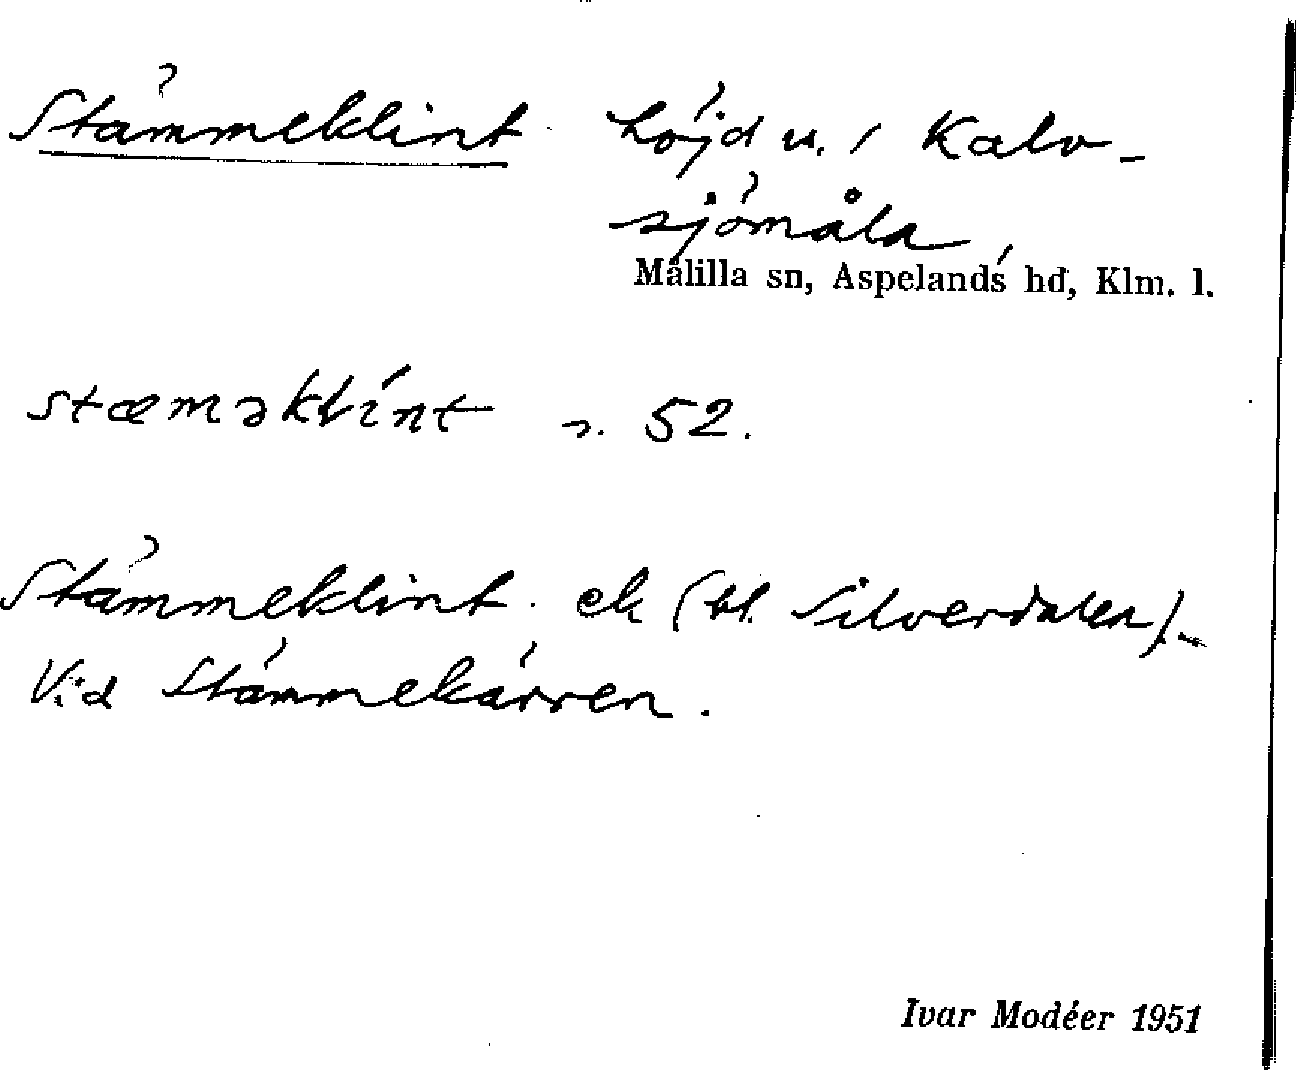 Stämmeklint höjd u. / Kalv-
sjömåla,
Målilla sn, Aspelands hd, Klm. l.
stæməklínt s. 52.
Stämmeklint. ek (bl. Silverdalen).-
Vid Stämmekärren.
Ivar Modéer 1951